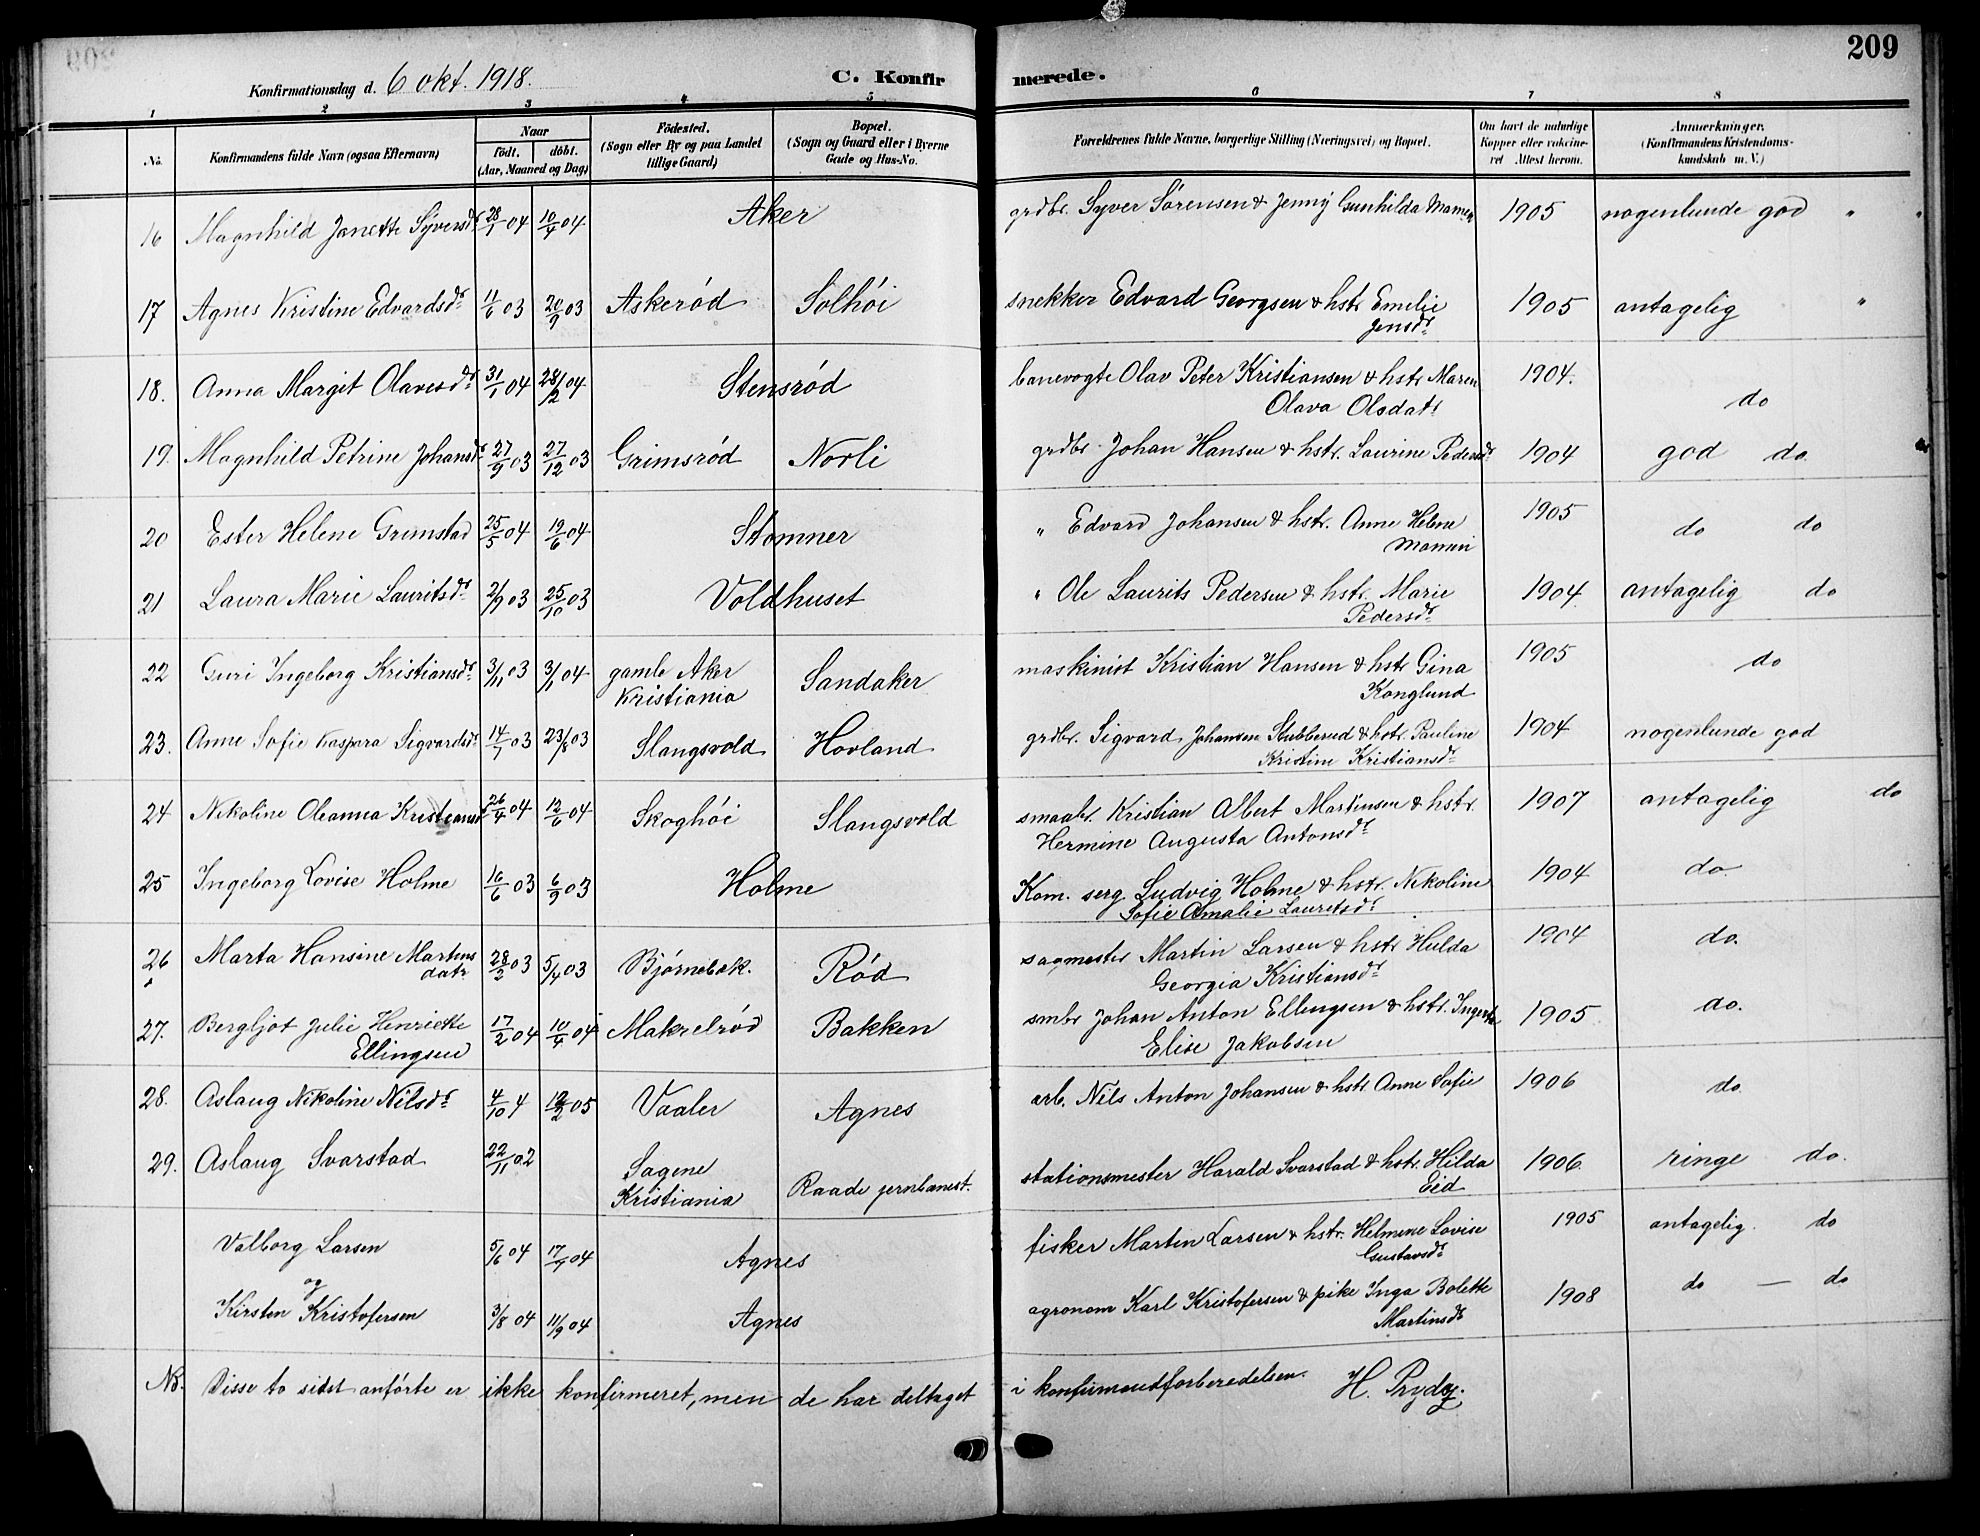 209
Konfirmationsdag d. 6 okt. 1918. C. Konfirmerede.
1 2 3 4 5 6 7 8
No. Konfirmandens fulde Navn (ogsaa Efternavn) Naar födt. döbt. (Aar, Maaned og Dag) Födested. (Sogn eller By og paa Landet tillige Gaard) Bopæl. (Sogn og Gaard eller i Byerne Gade og Hus-No. Forældrenes fulde Navne, borgerlige Stilling (Næringsvei) og Bopæl. Om havt de naturlige Kopper eller vakcineret. Attest herom. Anmærkninger. (Konfirmandens Kristendomskundskab m. V.)
16 Magnhild Janette Syversdr 28/1 04 10/4 04 Aker grdbr. Syver Sørensen & Jenny Gunhilda Mamen 1905 nogenlunde god "
17 Agnes Kristine Edvardsdr 11/6 03 20/9 03 Askeród Solhói snekker Edvard Georgsen & hstr Emilie 1905 antagelig "
Jensdr
18. Anna Margit Olavesdr 31/1 04 28/12 04 Stensród banevogte Olav Peter Kristiansen & hstr Maren 1904. do
Olava Olsdatr
19. Magnhild Petrine Johansdr 27/9 03 27/12 03 Grimsród Norli grdbr Johan Hansen & hstr. Laurine Pedersdr 1904 god do
20 Ester Helene Grimstad 25/5 04 19/6 04 Stomner " Edvard Johansen & hstr. Anne Helene 1905 do do
21 Laura Marie Lauritsdr 2/9 03 25/10 03 Voldhuset " Ole Laurits Pedersen & hstr. Marie 1904. antagelig do
Pedersdr
22 Guri Ingeborg Kristiansdr 3/11 03 3/1 04 gamle Aker Sandaker maskinist Kristian Hansen & hstr Gina 1905 do
Kristiania Konglund
23. Anne Sofie Kaspara Sigvardsdr 14/7 03 23/8 03 Slangsvold Hovland grdbr. Sigvard Johansen Stubberud & hstr. Pauline 1904 nogenlunde god
Kristine Kristiansdr
24 Nikoline Oleanna Kristiansdr 26/4 04 12/6 04 Skoghói Slangsvold smaabr. Kristian Albert Martinsen & hstr. 1907 antagelig do
Hermine Augusta Antonsdr
25 Ingeborg Lovise Holme 16/6 03 6/9 03 Holme Kom. serg. Ludvig Holme & hstr. Nikoline 1904 do.
Sofie Amalie Lauritsdr
26 Marta Hansine Martins 28/2 03 5/4 03 Bjørnebek. Ród sagmester Martin Larsen & hstr Hulda 1904 do.
datr Georgia Kristiansdr
27. Bergljot Julie Henriette 17/2 04 10/4 04 Makrelród Bakken smbr Johan Anton Ellingsen & hstr. 1905 do.
Ellingsen Elise Jakobsen
28. Aslaug Nikoline Nilsdr 4/10 4 05 Vaaler Agnes arb. Nils Anton Johansen & hstr. Anne Sofie 1906 do
29. Aslaug Svarstad 22/11 02 Sagene Raade jernbanest. stationsmester Harald Svarstad & hstr. Hilda 1906 ringe do.
Kristiania Eid
Valborg Larsen 5/6 04 17/7 04 Agnes fisker Martin Larsen & hstr. Helmine Lovise 1905 antagelig. do
og Gustavsdr
Kirsten Kristofersen 3/8 04 11/9 04 Agnes agronom Karl Kristofersen & pike Inga Bolette 1908 do — do
Martinsdr
NB. Disse to sidst anfórte er ikke konfirmeret, men de har deltaget i konfirmantforberedelsen. H. Prydz.